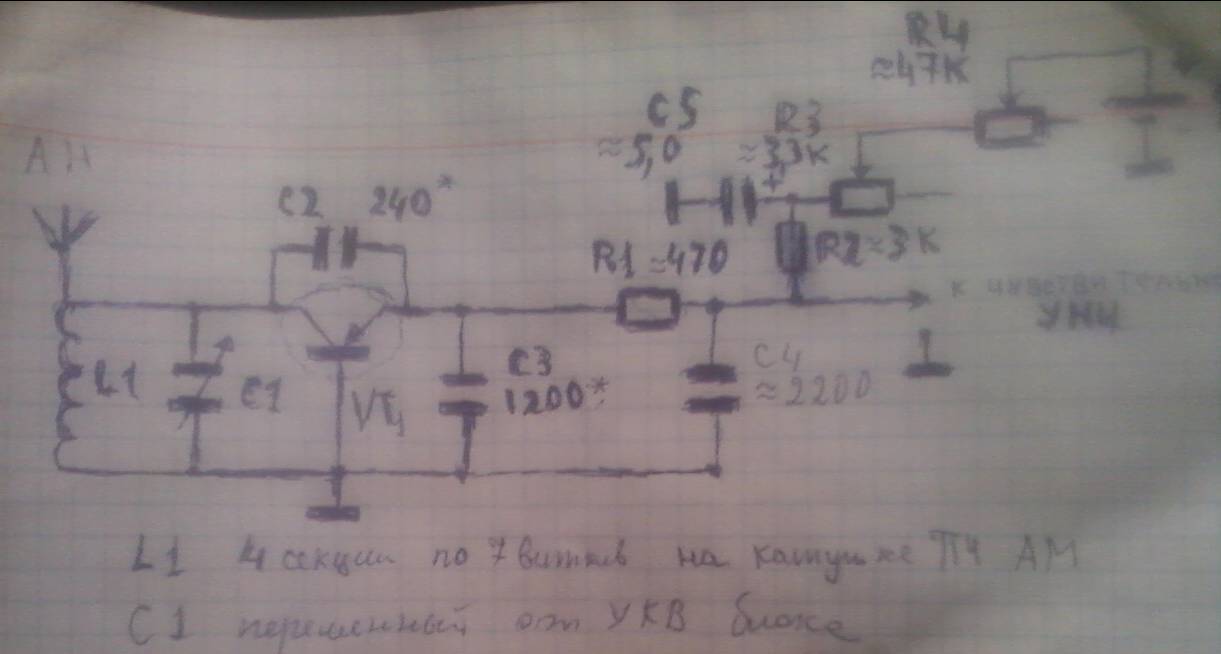 R4
≈47K
C5
≈5,0
R3
≈3,3к
+
АН
C2 240*
R1 ≈470
R2 ≈3К
к чувствительн
УНЧ
L1
C1
VT1
C3
1200*
C4
≈2200
L1 4 секции по 7 витков на катушке ПЧ АМ
C1 переменный от УКВ блока